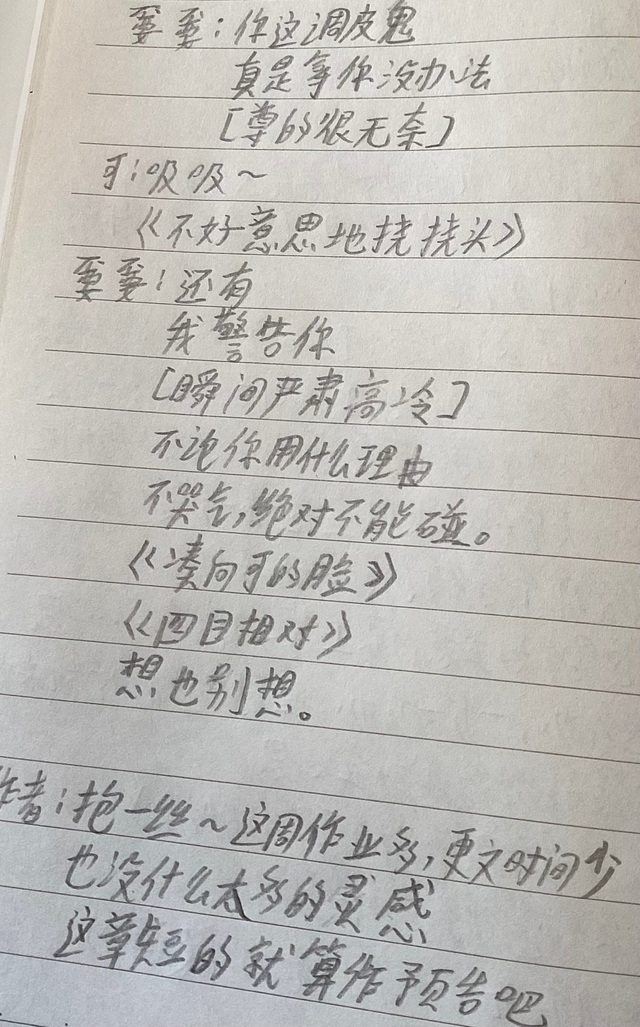 要要：你这调皮鬼
真是拿你没办法
[尊的很无奈]
可：吸吸～
《不好意思地挠挠头》
要要：还有
我警告你
[瞬间严肃高冷]
不论你用什么理由
不哭气，绝对不能碰。
《凑向可的脸》
《四目相对》
想也别想。
作者：抱一丝～这周作业多，更文时间少
也没什么太多的灵感
这章短的就算作预告吧